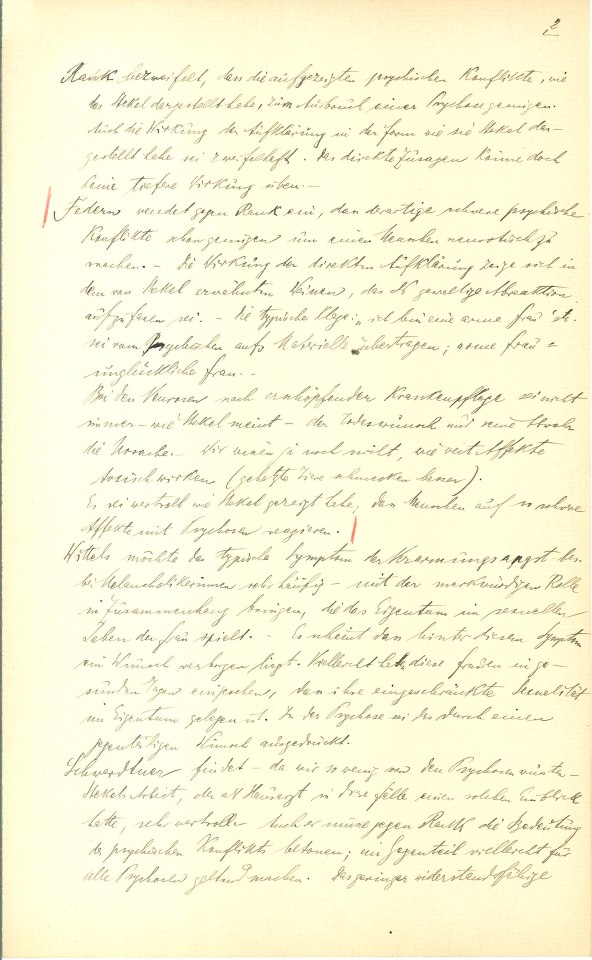 2
Rank bezweifelt, dass die aufgezeigten psychischen Konflikte, wie
das Stekel dargestellt habe, zum Ausbruch einer Psychose genügen.
Auch die Wirkung der Aufklärung in der Form wie sie Stekel dar-
gestellt habe sei zweifelhaft. Das direkte Zusagen könne doch
keine tiefere Wirkung üben.—
Federn wendet gegen Rank ein, dass derartige schwere psychische
Konflikte schon genügen um einen Menschen neurotisch zu
machen.– Die Wirkung der direkten Aufklärung zeige sich in
dem von Stekel erwähnten Weinen, das als gewaltige Abreaktion
aufzufassen sei. – Die typische Klage: „ich bin eine arme Frau" etc.
sei vom Psychischen aufs Materielle übertragen; arme Frau =
unglückliche Frau.–
Bei den Neurosen nach erschöpfender Krankenpflege sei nicht
immer – wie Stekel meint – der Todeswunsch und seine Abwehr
die Ursache. Wir wissen ja noch nicht, wie weit Affekte
toxisch wirken (gehetzte Tiere schmecken besser).
Es sei wertvoll wie Stekel gezeigt habe, dass Menschen auf so schwere
Affekte mit Psychosen reagieren.
Wittels möchte das typische Symptom der Verarmungsangst bes.
bei Melancholikerinnen sehr häufig – mit der merkwürdigen Rolle
in Zusammenhang bringen, die das Eigentum im sexuellen
Leben der Frau spielt. – Es scheint dass hinter diesem Symptom
ein Wunsch verborgen liegt. Vielleicht haben diese Frauen in ge-
sunden Tagen eingesehen, dass ihre eingeschränkte Sexualität
im Eigentum gelegen ist. In der Psychose sei das durch einen
gegenteiligen Wunsch ausgedrückt.
Schwerdtner findet – da wir so wenig von den Psychosen wüssten –
Stekels Arbeit, der als Hausarzt in diese Fälle einen solchen Einblick
hatte, sehr wertvoll. Auch er müsse gegen Rank die Bedeutung
des psychischen Konflikts betonen; im Gegenteil vielleicht für
alle Psychosen geltend machen. Das geringer widerstandsfähige